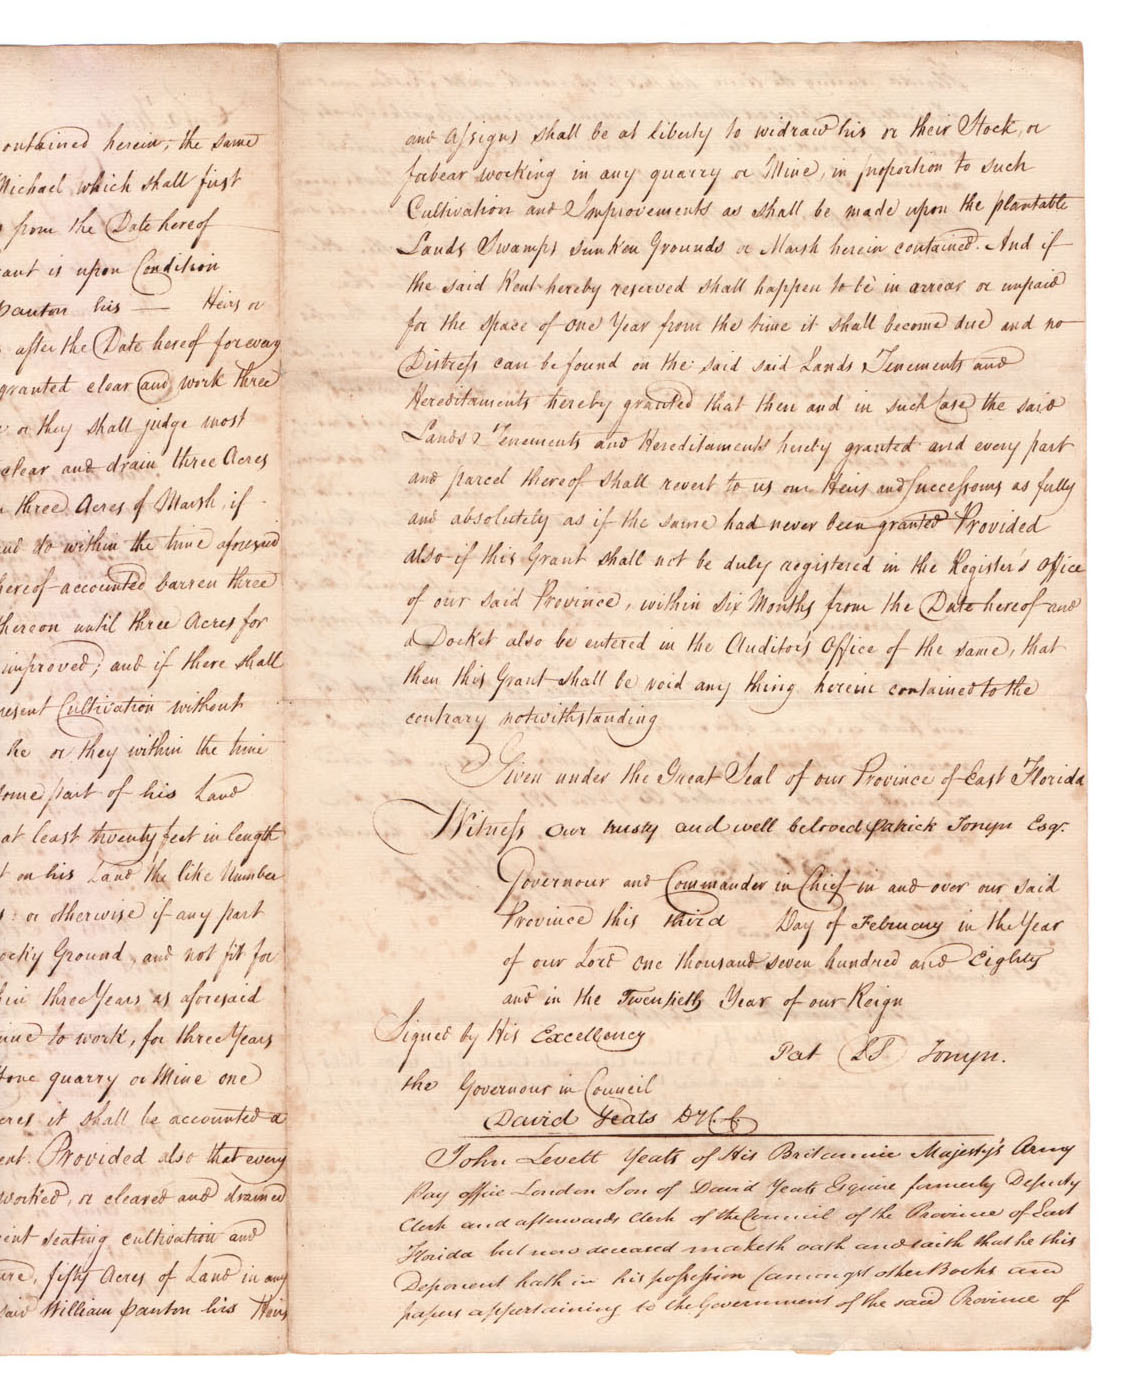 ontained herein, the same
Michael which shall first
from the Date hereof
rant is upon Condition
Panton his — Heirs or
after the Date hereof for every
granted clear and work three
or they shall judge most
clear and drain three Acres
three Acres of Marsh, if
and do within the time aforesaid
hereof accounted barren three
thereon until three Acres for
improved; and if there shall
resent Cultivation without
he or they within the time
some part of his Land
at least twenty feet in length
on his Land the like Number
or otherwise if any part
ocky Ground, and not fit for
hin three Years as aforesaid
nue to work, for three Years
tone quarry or Mine one
cres it shall be accounted a
ent. Provided also that every
worked, or cleared and drained
ient seating cultivation and
ure, fifty Acres of Land in any
said William Panton his Heirs
and Assigns shall be at liberty to widraw his or their Stock, or
forbear working in any quarry or Mine, in proportion to such
Cultivation and Improvements as shall be made upon the plantable
Lands Swamps sunken Grounds or Marsh herein contained. And if
the said Rent hereby reserved shall happen to be in arrear or unpaid
for the space of one Year from the time it shall become due and no
Distress can be found on the said said Lands Tenements and
Hereditaments hereby granted that then and in such Case the said
Lands Tenements and Hereditaments hereby granted and every part
and parcel thereof shall revert to us our Heirs and Successours as fully
and absolutely as if the same had never been granted Provided
also if this Grant shall not be duly registered in the Register's Office
of our said Province, within Six Months from the Date hereof and
a Docket also be entered in the Auditor's Office of the same, that
then this Grant shall be void any thing herein contained to the
contrary notwithstanding
Given under the Great Seal of our Province of East Florida
Witness our trusty and well beloved Patrick Tonyn Esqr.
Governour and Commander in Chief in and over our said
Province this third Day of February in the Year
of our Lord one thousand seven hundred and Eighty
and in the Twentieth Year of our Reign
Signed by His Excellency
Pat LS Tonyn.
the Governour in Council
David Yeats
John Levett Yeats of His Britannic Majesty's Army
Pay office London Son of David Yeats Esquire formerly Deputy
Clerk and afterwards Clerk of the Council of the Province of East
Florida but now deceased maketh oath and saith that he this
Deponent hath in his possession (amongst other Books and
papers appertaining to the Government of the said Province of